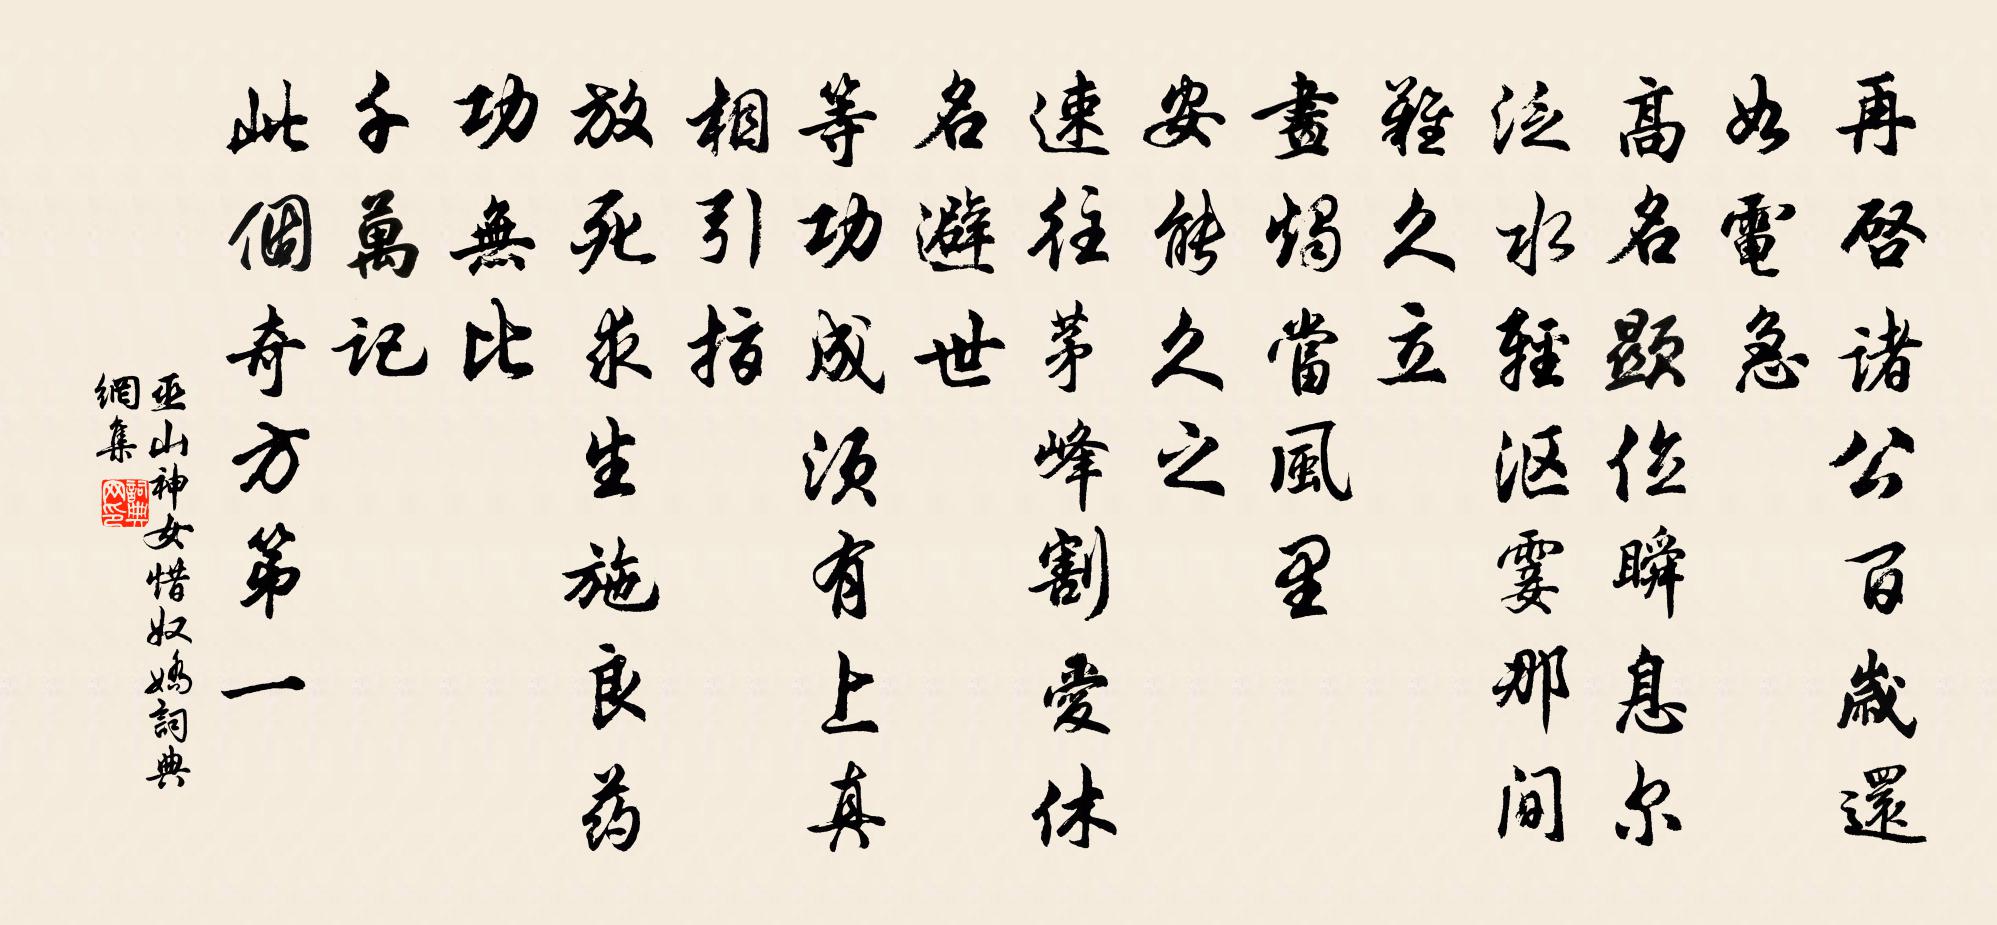 再啓諸公百歲還
如電急
高名顯位瞬息尔
泛水輕漚霎那间
難久立
畫燭當風里
安能久之
速往茅峰割愛休
名避世
等功成須有上真
相引指
放死求生施良药
功無比
千萬記
此個奇方第一
巫山神女惜奴嬌詞典
網集
詞典网印